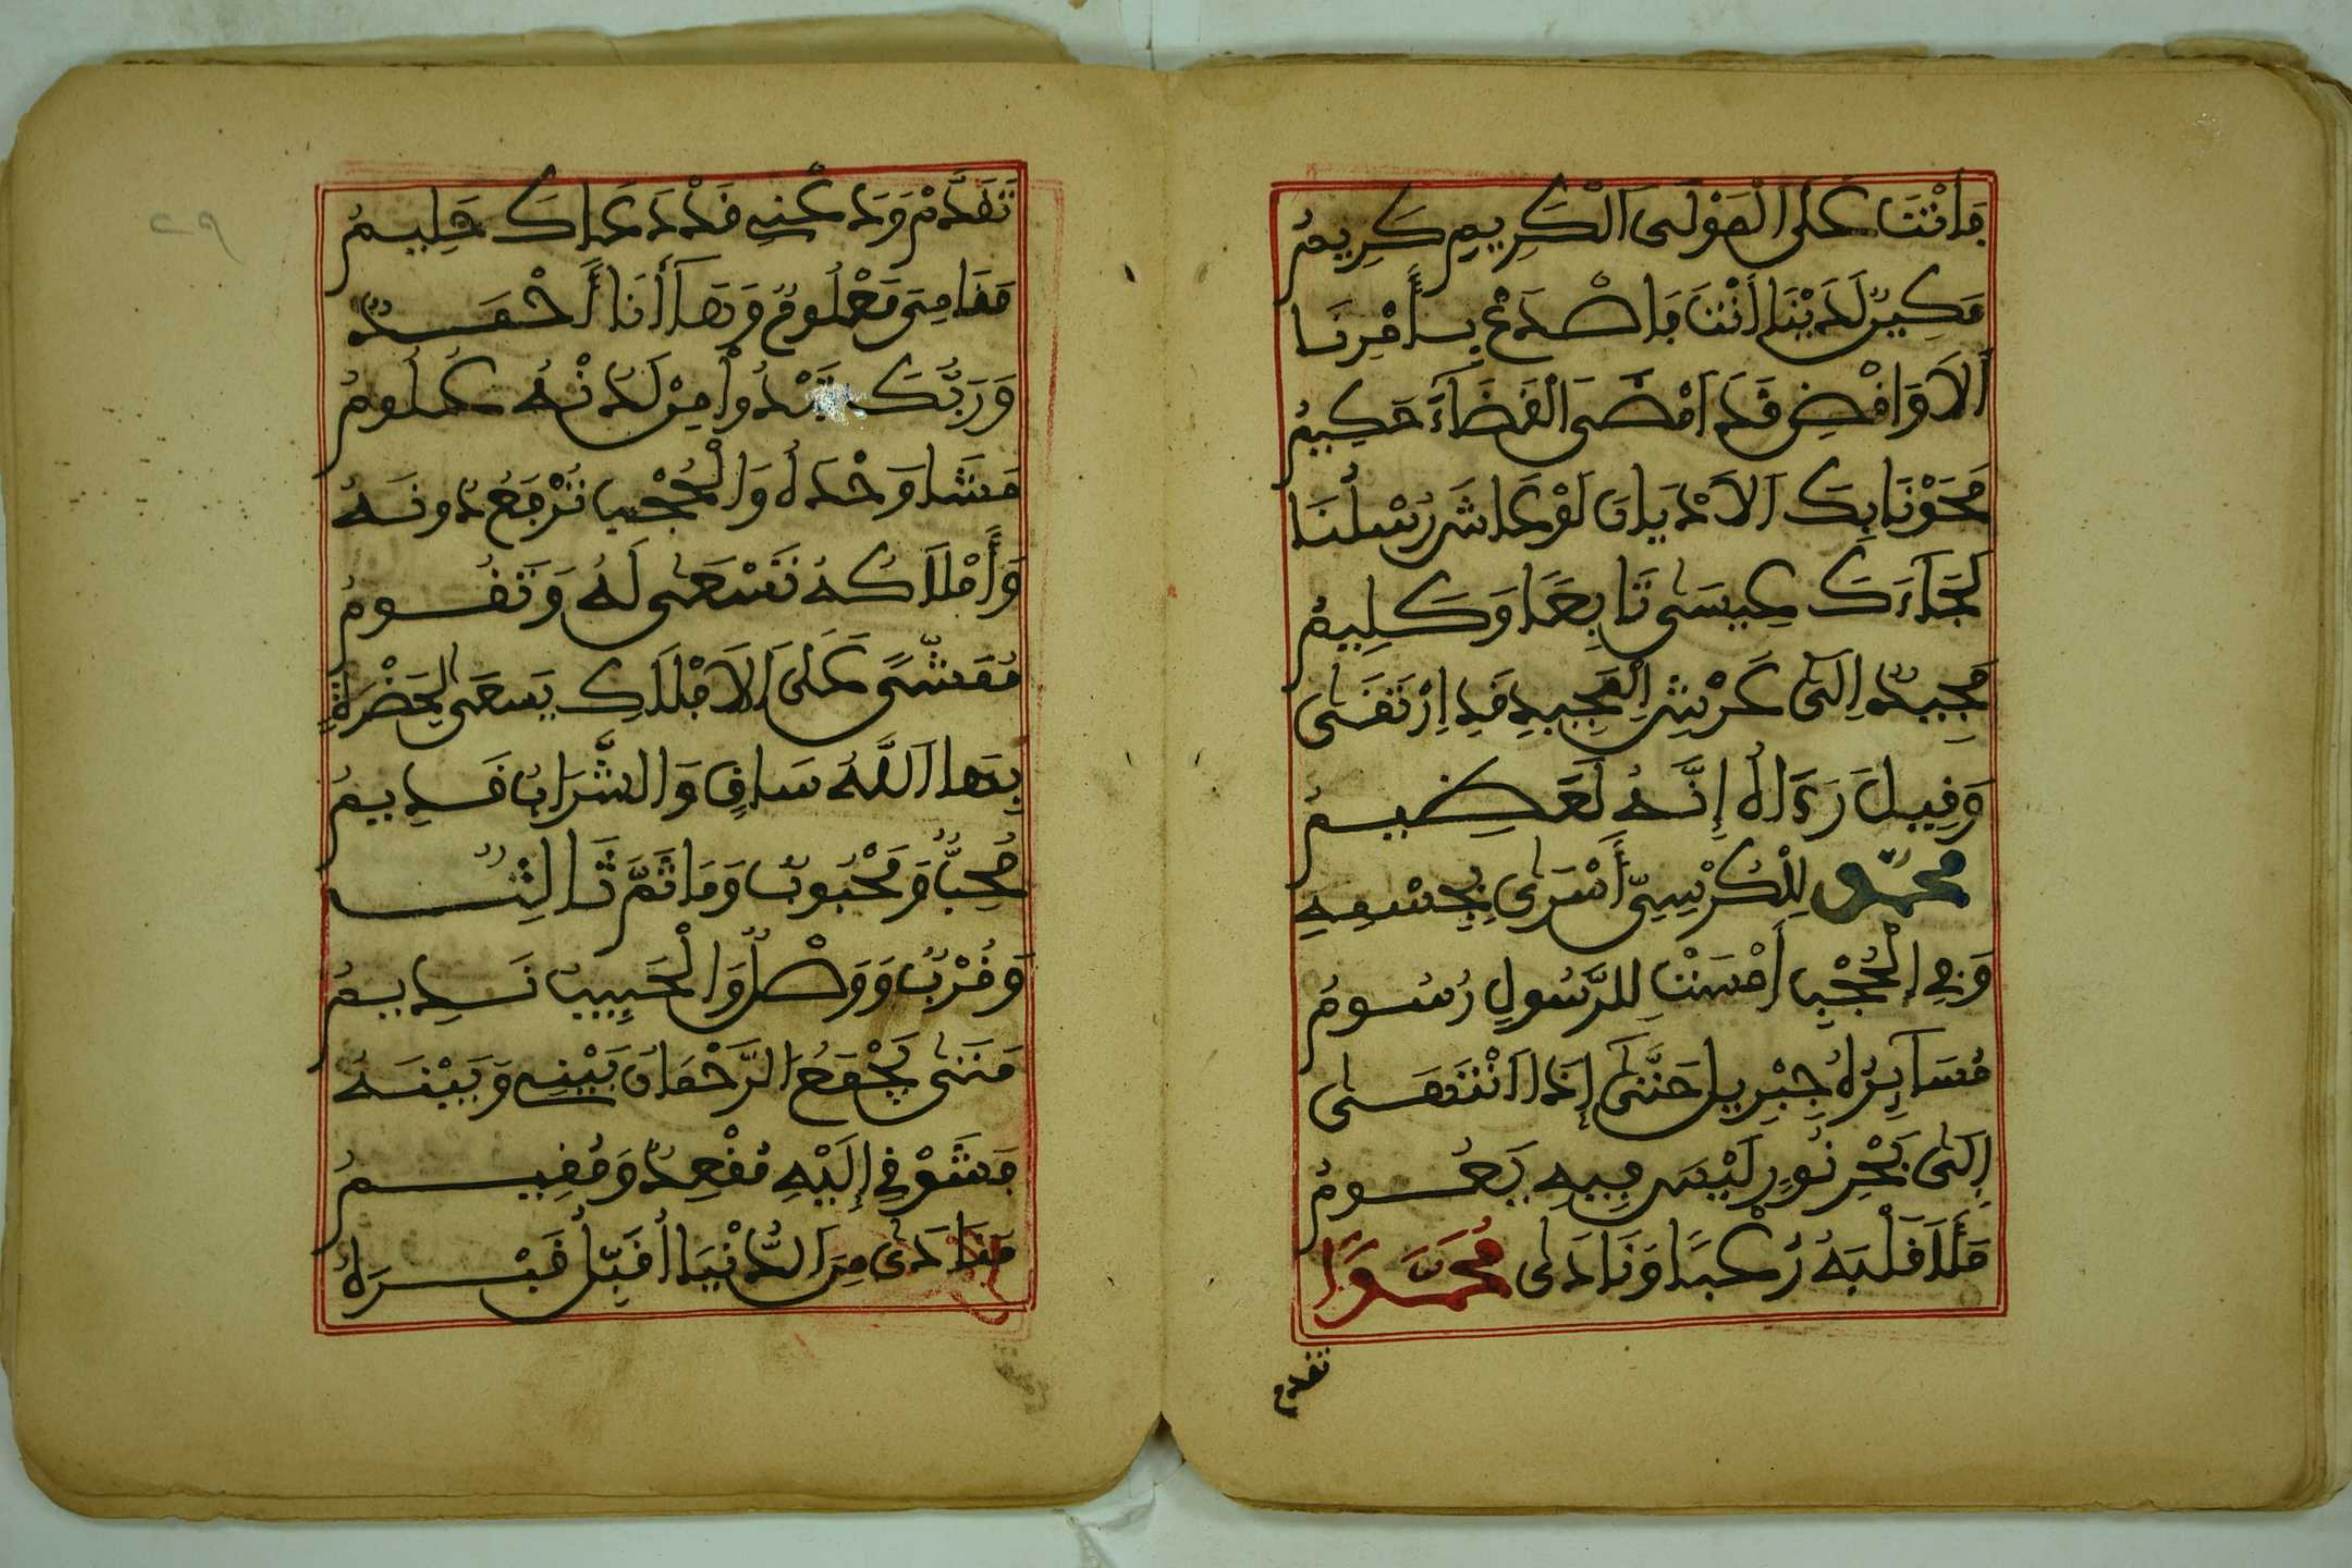 فَأَنْتَ عَلَى الْمَوْلَى الْكَرِيمِ كَرِيمُ
مَكِينٌ لَدَيْنَا أَنْتَ فَاصْدَعْ بِأَمْرِنَا
أَلَا وَاقْضِ قَدْ أَمْضَى الْقَضَاءَ حَكِيمُ
مَحَوْنَا بِكَ الْأَدْيَانَ لَوْ عَاشَ رُسْلُنَا
لَجَاءَكَ عِيسَى تَابِعًا وَكَلِيمُ
مَجِيدٌ إِلَى عَرْشِ الْمَجِيدِ قَدِ ارْتَقَى
وَقِيلَ رَءَاهُ إِنَّهُ لَعَظِيمُ
مُحَمَّدٌ لِلْكُرْسِيِّ أَسْرَى بِجِسْمِهِ
وَفِي الْحُجْبِ أَمْسَتْ لِلرَّسُولِ رُسُومُ
مُسَايِرُهُ جِبْرِيلُ حَتَّى إِذَا انْتَهَى
إِلَى بَحْرِ نُورٍ لَيْسَ فِيهِ يَعُومُ
مَلَا قَلْبَهُ رُعْبًا وَنَادَى مُحَمَّدًا
تقدم
٢٩
تَقَدَّمْ وَدَعْنِي قَدْ دَعَاكَ حَلِيمُ
مَقَامِي مَعْلُومٌ وَهَا أَنَا أَحْمَدٌ
وَرَبُّكَ تَبْدُوا مِنْ لَدُنْهُ عُلُومُ
مَشَا وَحْدَهُ وَالْحُجْبُ تُرْفَعُ دُونَهُ
وَأَمْلَاكُهُ تَسْعَى لَهُ وَتَقُومُ
مُمَشًّى عَلَى الْأَمْلَاكِ يَسْعَى لِحَضْرَةٍ
بِهَا اللَّهُ سَاقٍ وَالشَّرَابُ قَدِيمُ
مُحِبٌّ وَمَحْبُوبٌ وَمَا ثَمَّ ثَالِثٌ
وَقُرْبٌ وَوَصْلٌ وَالْحَبِيبُ نَدِيمُ
مَتَى يَجْمَعُ الرَّحْمَانُ بَيْنِي وَبَيْنَهُ
فَشَوْقِي إِلَيْهِ مُقْعِدٌ وَمُقِيمُ
مُرَادِي مِنَ الدُّنْيَا أُقَبِّلُ قَبْرَهُ